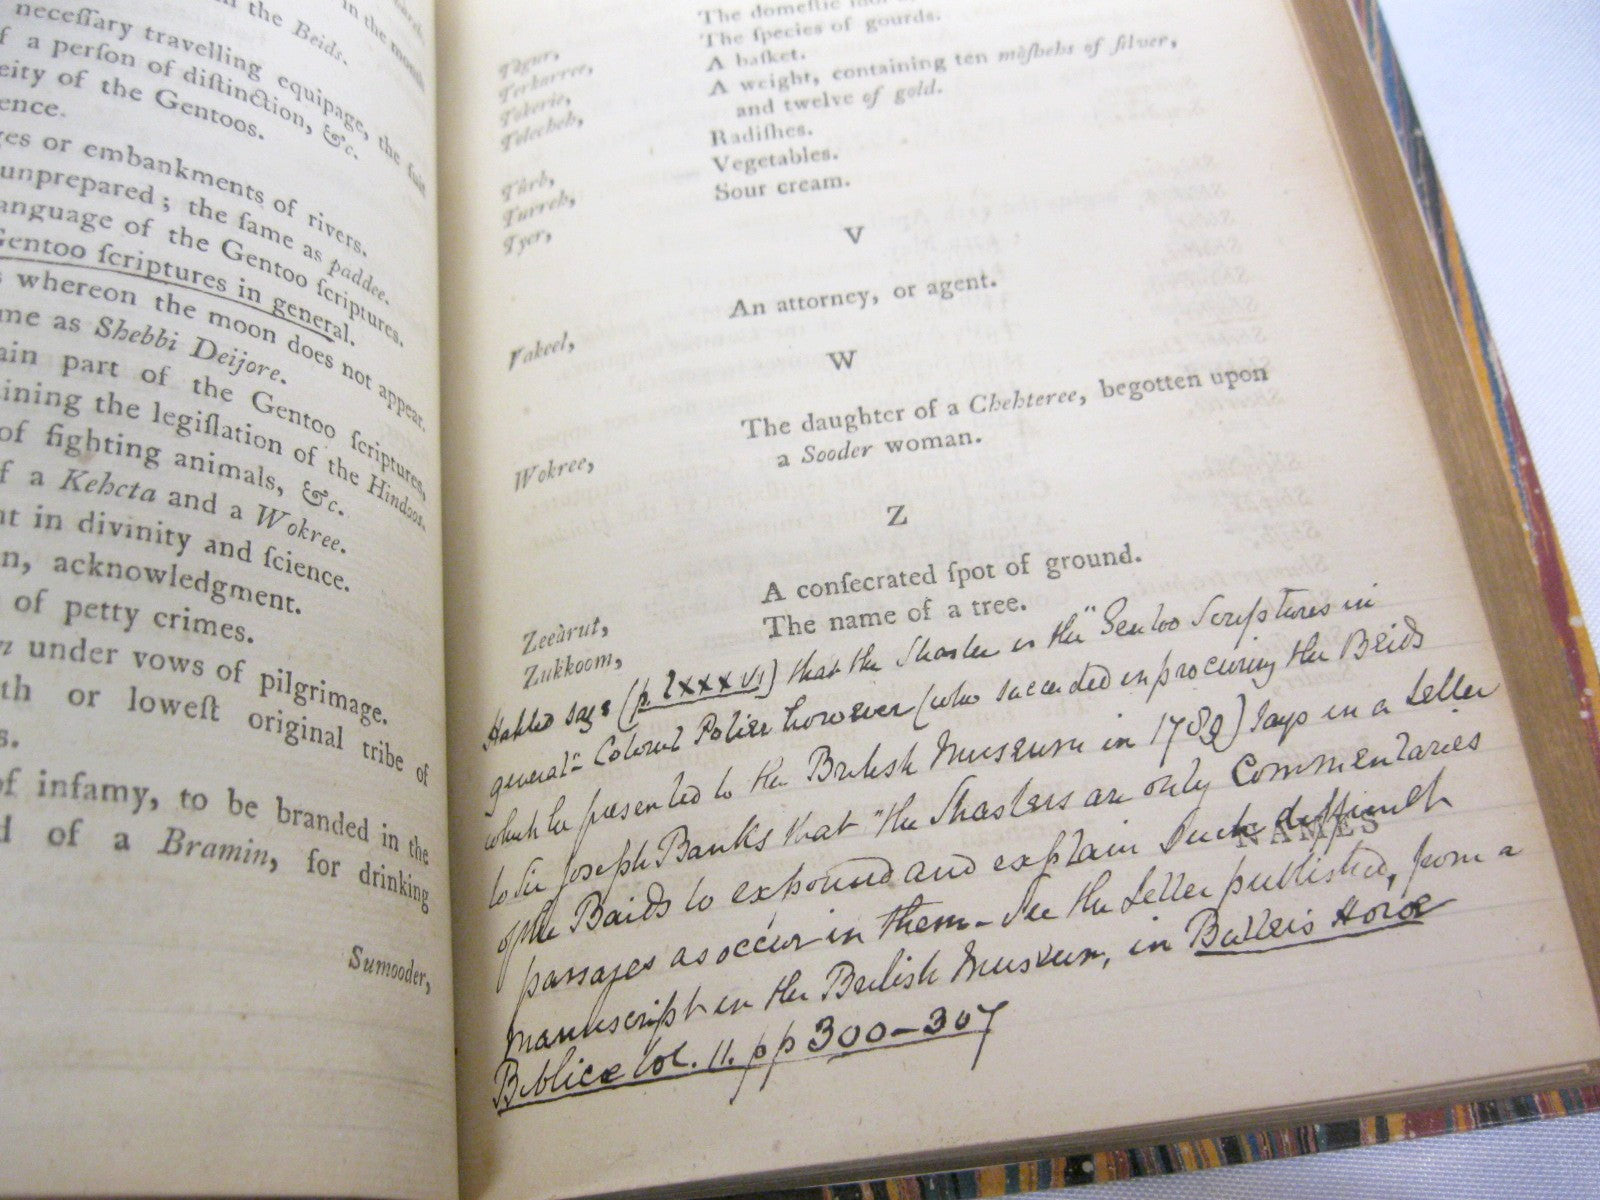 the Beids.
in the mouth
necessary travelling equipage, the suit
of a person of distinction, &c.
eity of the Gentoos.
ence.
ges or embankments of rivers.
unprepared; the same as paddee.
anguage of the Gentoo scriptures.
Gentoo scriptures in general.
s whereon the moon does not appear.
me as Shebbi Deijore.
ain part of the Gentoo scriptures,
ining the legislation of the Hindoos.
of fighting animals, &c.
f a Kehcta and a Wokree.
nt in divinity and science.
n, acknowledgment.
of petty crimes.
n under vows of pilgrimage.
th or lowest original tribe of
s.
of infamy, to be branded in the
d of a Bramin, for drinking
Sumooder,
The domestic
Tàgur, The species of gourds.
Terkarree, A basket.
Tokerie, A weight, containing ten màshehs of silver,
Tolecheh, and twelve of gold.
Radishes.
Tùrb, Vegetables.
Turreh, Sour cream.
Tyer,
V
An attorney, or agent.
Vakeel,
W
The daughter of a Chehteree, begotten upon
a Sooder woman.
Wokree,
Z
A consecrated spot of ground.
Zeeàrut, The name of a tree.
Zukkoom,
Halhed says (p. lxxxvi) that the Shaster is the "Gentoo Scriptures in
general"- Colonel Polier however (who succeeded in procuring the Beids
which he presented to the British Museum in 1789) says in a Letter
to Sir Joseph Banks that "the Shasters are only Commentaries
of the Baids to expound and explain such difficult
NAMES
passages as occur in them - See the Letter published, from a
manuscript in the British Museum, in Butler's Horæ
Biblicæ Vol. 11. pp 300-307